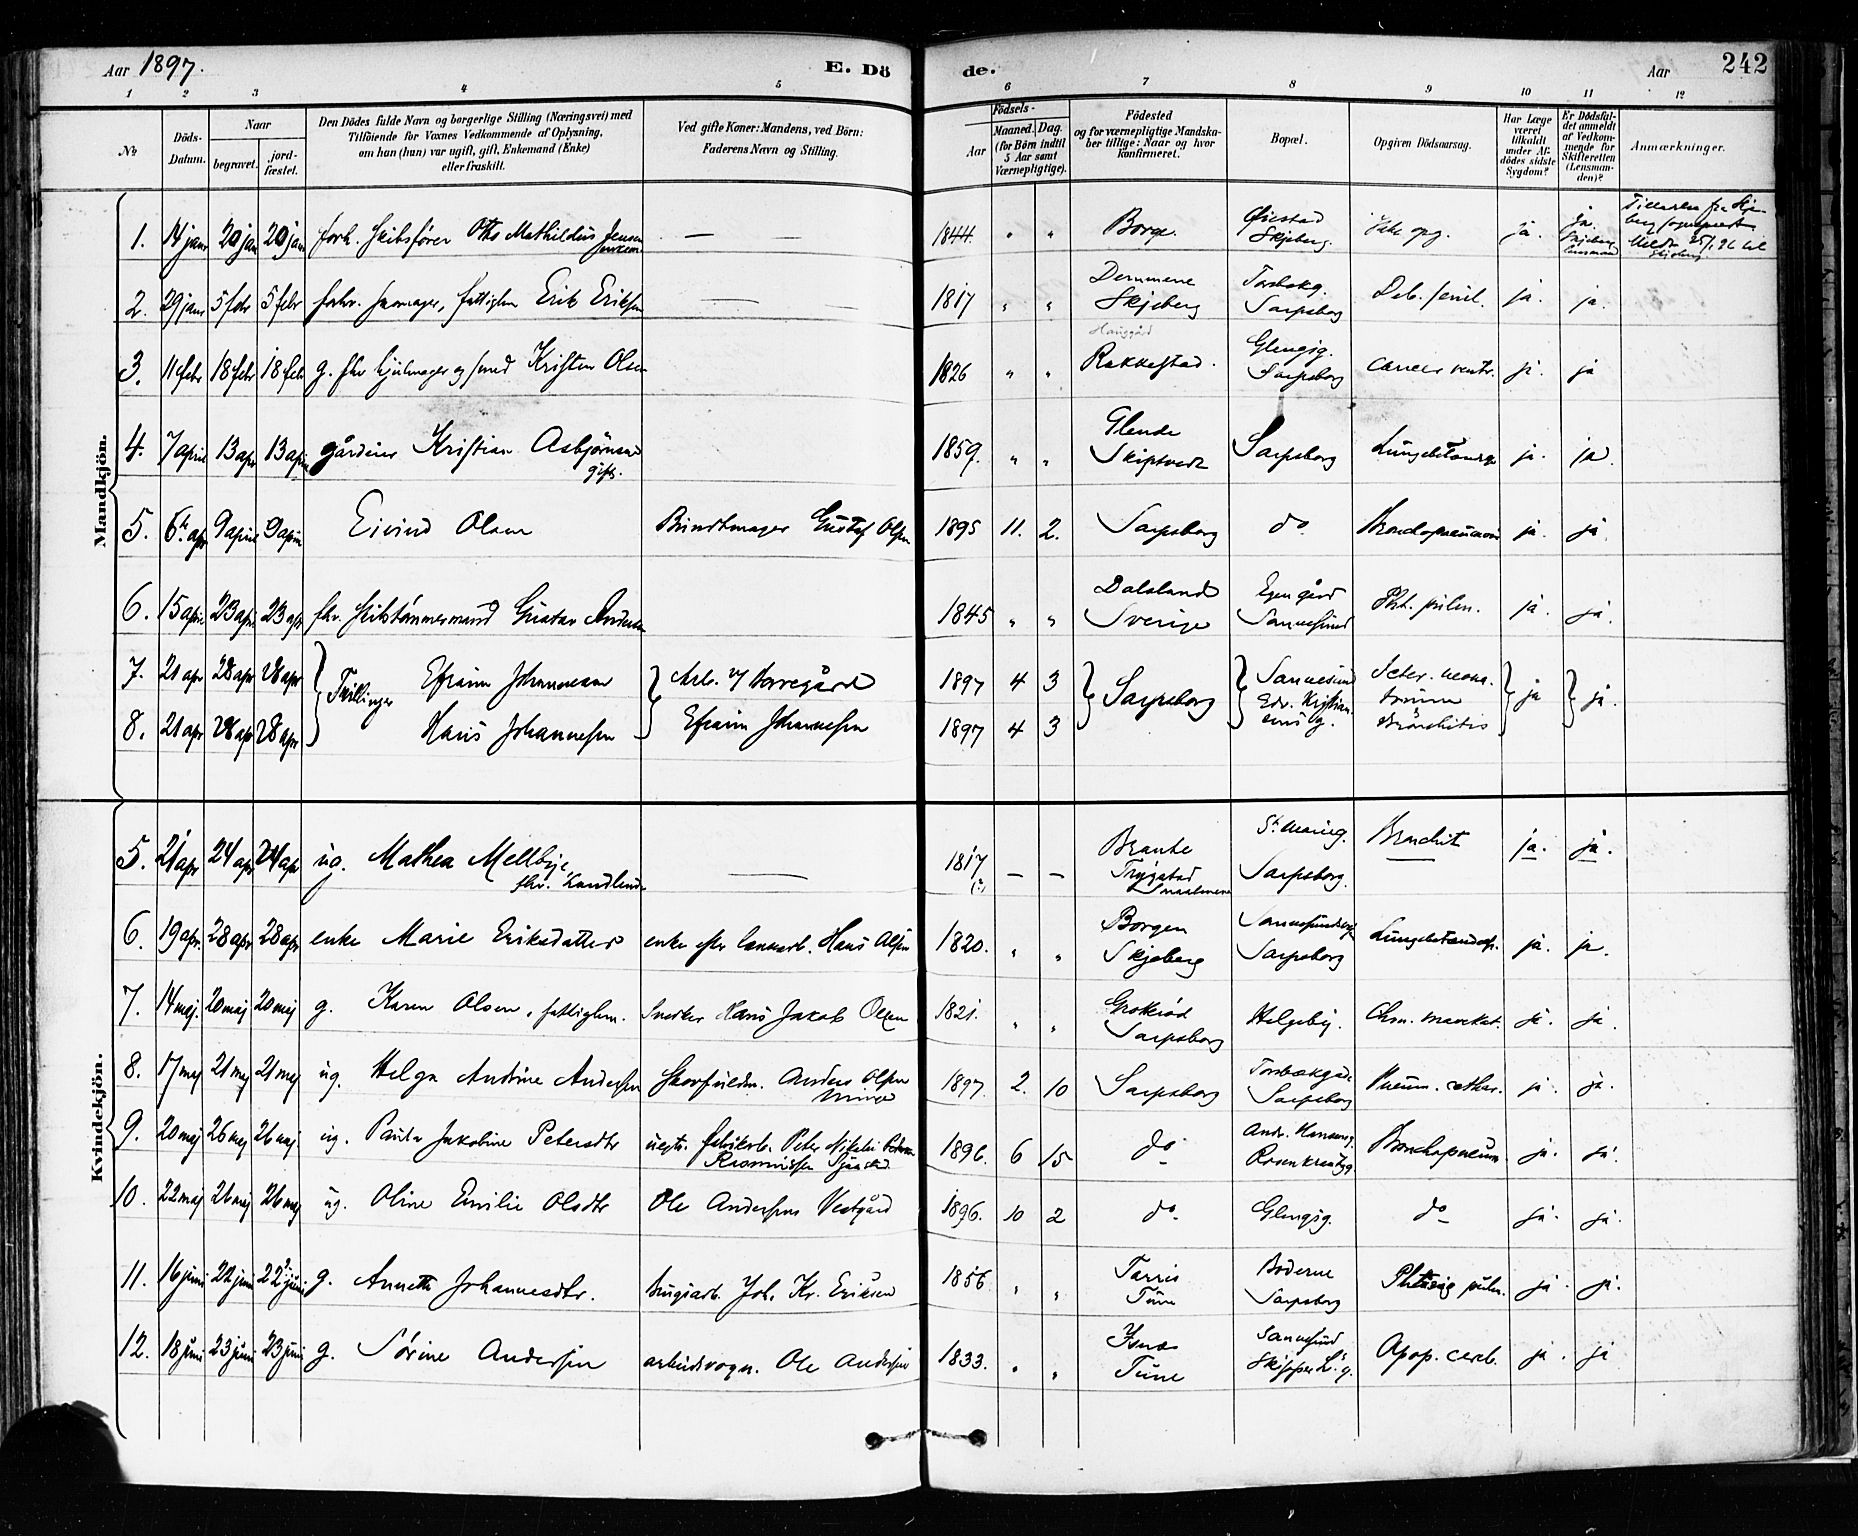 Aar 1897. E. Dö de. Aar 242
1 2 3 4 5 6 7 8 9 10 11 12
No
Döds-Datum.
Naar
begravet. jord-fæstet.
Den Dödes fulde Navn og borgerlige Stilling (Næringsvei) med
Tilföiende for Voxnes Vedkommende af Oplysning,
om han (hun) var ugift, gift, Enkemand (Enke)
eller fraskilt.
Ved gifte Koner: Mandens, ved Börn:
Faderens Navn og Stilling.
Födsels-
Aar Maaned. Dag.
(for Börn indtil
5 Aar samt
Værnepligtige).
Födested
og for værnepligtige Mandska-
ber tillige: Naar og hvor
konfirmeret.
Bopæl.
Opgiven Dödsaarsag.
Har Læge
været
tilkaldt
under Af-
dödes sidste
Sygdom?
Er Dödsfal-
det anmeldt
af Vedkom-
mende for
Skifteretten
(Lensman-
den)?
Anmærkninger.
Mandkjön.
1. 14 janr 20 jan 20 jan forh. Skibsfører Otto Mathildius Jensen — — 1844. " " Borge. Skjeberg. ja. ja. Skjeberg lensmand
2. 29 janr 5 febr 5 febr forhv. skomager, fattiglem Erik Eriksen — — 1817 " " Skjeberg Torsbækg. Sarpsborg Deb. senil. ja. ja.
3. 11 febr 18 febr 18 feb g. fhv hjulmager og smed Kristen Olsen 1826 " " Rakkestad. Glengsg. Sarpsborg Cancer ventr. ja. ja
4. 7 april 13 apr 13 april gårdeier Kristian Asbjørnsen gift. 1859. " " Glende Skiptvedt Sarpsborg Lungebetændelse ja. ja.
5. 6te apr 9 april 9 april Eivind Olsen Bundtmager Gustaf Olsen 1895 11. 2. Sarpsborg do Bronchopneumoni ja. ja.
6. 15 april 23 apr 23 apr fhv. skibstømmermand Gustav Andersen 1845 " " Dalsland Sverige Egen gård Sannesund Pht. pulm. ja. ja.
7. 21 apr 28 apr 28 apr Tvillinger Efraim Johannesen Arb. v/ Borregård 1897 4 3 Sarpsborg Sannesund Icter. neona-torum ja ja.
8. 21 apr 28 apr 28 apr Hans Johannesen Efraim Johannesen 1897 4 3 Edv. Kristian-sens g. Bronchitis
Kvindekjön.
5. 21 apr 24 apr 24 apr ug. Mathea Mellbye, — 1817 (?) — — Trøgstad Smaalenene St. Marieg. Sarpsborg. Bronchit ja. ja.
6. 19 apr. 28 apr 28 apr enke Marie Eriksdatter enke efter Hans Olsen 1820. " " Borgen Skjeberg Sarpsborg Lungebetændels. ja. ja.
7. 14 maj. 20 maj 20 maj g. Karen Olsen, fattiglem. Snedker Hans Jakob Olsen 1821. " " Sarpsborg Helgeby. ja. ja.
8. 17 maj 21 maj 21 maj ug. Helga Andrine Andersen Anders Olsen 1897. 2. 10 Sarpsborg Torsbækgade Sarpsborg Pneum. cathar. ja. ja.
9. 20 maj 26 maj 26 maj. ug. Paula Jakobine Petersdtr fabrikarb. Peter Nikolai 1896. 6 15 do Andr. Hansens g. Rosenkrantzg. Bronchopneum. ja. ja.
10. 22 maj 26 maj 26 maj ug. Oline Emilie Olsdtr Ole Andersen Vestgård 1896. 10 2 do Glengsg. do ja. ja.
11. 16 juni 22 juni 22 juni g. Annette Johannesdtr. Joh. Kr. Eriksen 1856 " " Tune Boderne Sarpsborg Phtisis pulm. ja. ja.
12. 18 juni 23 juni 23 juni g. Sørine Andersen arbeidsvogn. Ole Andersen 1833. " " Tune Sannesund Skipper L.s g. Apop. cereb. ja. ja